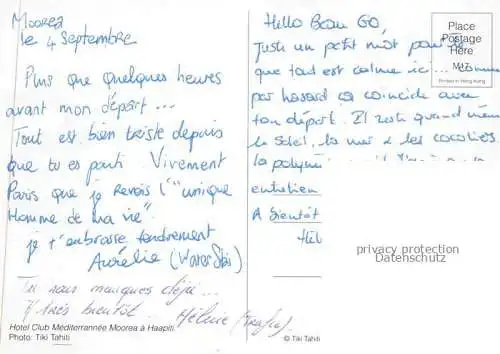 Moorea
le 4 Septembre
Plus que quelques heures
avant mon départ...
Tout est bien triste depuis
que tu es parti Vivement
Paris que je revois l'"unique
Homme de ma vie".
je t'embrasse tendrement
Aurélie (Water Skis)
Tu nous manques déjà...
A très bientôt. Hélène
Hotel Club Méditerrannée Moorea à Haapiti
Photo: Tiki Tahiti
Hello Beau GO,
Juste un petit mot pour te
que tout est calme ici...
par hasard ça coincide avec
ton départ. Il reste quand même
le soleil, la mer & les cocotiers
la polyné
entretien
A bientôt
Hél
Place
Postage
Here
Printed in Hong Kong
privacy protection
Datenschutz
© Tiki Tahiti